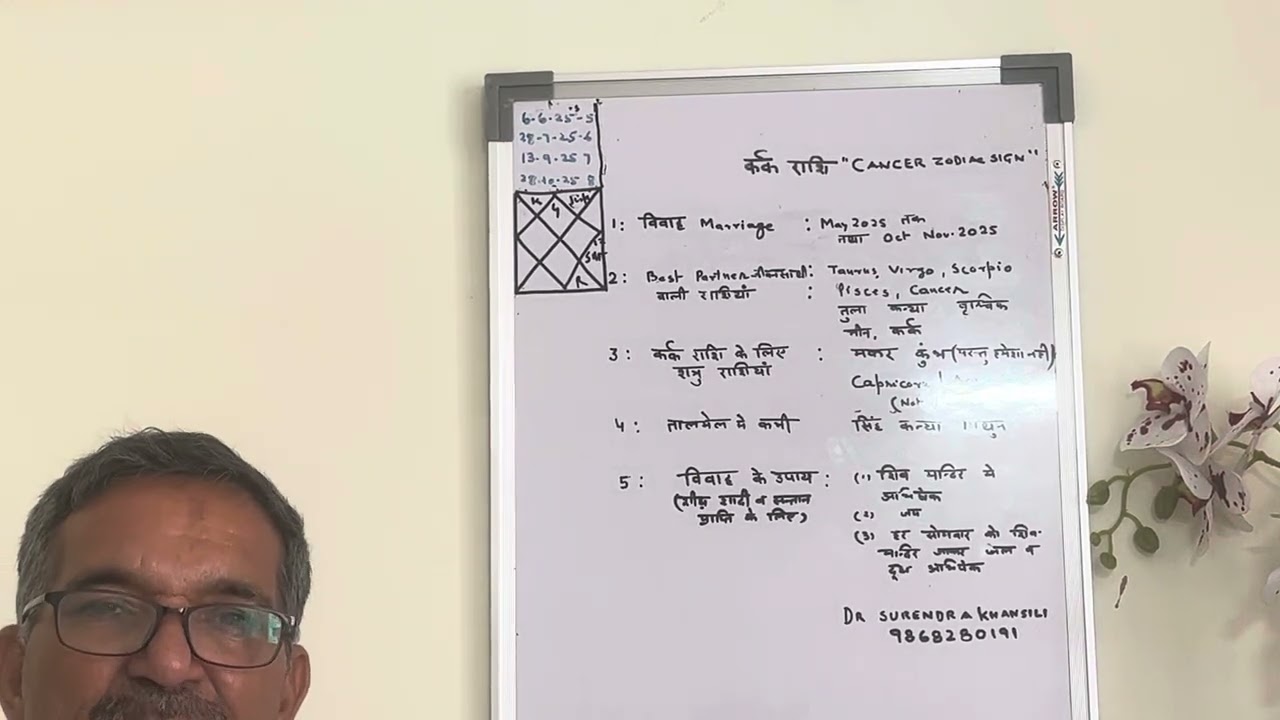 6-6-25-5
28-7-25-6
13-9-25 7
28-10-25 8
कर्क राशि "CANCER ZODIAC SIGN"
ARROW
1: विवाह Marriage : May 2025 तक
तथा Oct Nov. 2025
2: Best Partner जीवनसाथी: Taurus, Virgo, Scorpio
वाली राशियां : Pisces, Cancer
तुला कन्या वृश्चिक
मीन, कर्क
3: कर्क राशि के लिए : मकर कुंभ (परन्तु हमेशा नहीं)
शत्रु राशियां
Capricorn
(Not
4: तालमेल मे कमी सिंह कन्या मिथुन
5: विवाह के उपाय : (1) शिव मन्दिर मे
(शीघ्र शादी व सन्तान अभिषेक
प्राप्ति के लिए) (2) जप
(3) हर सोमवार को शिव
मन्दिर जाकर जल व
दूध अभिषेक
DR SURENDRA KHANSILI
9868280191